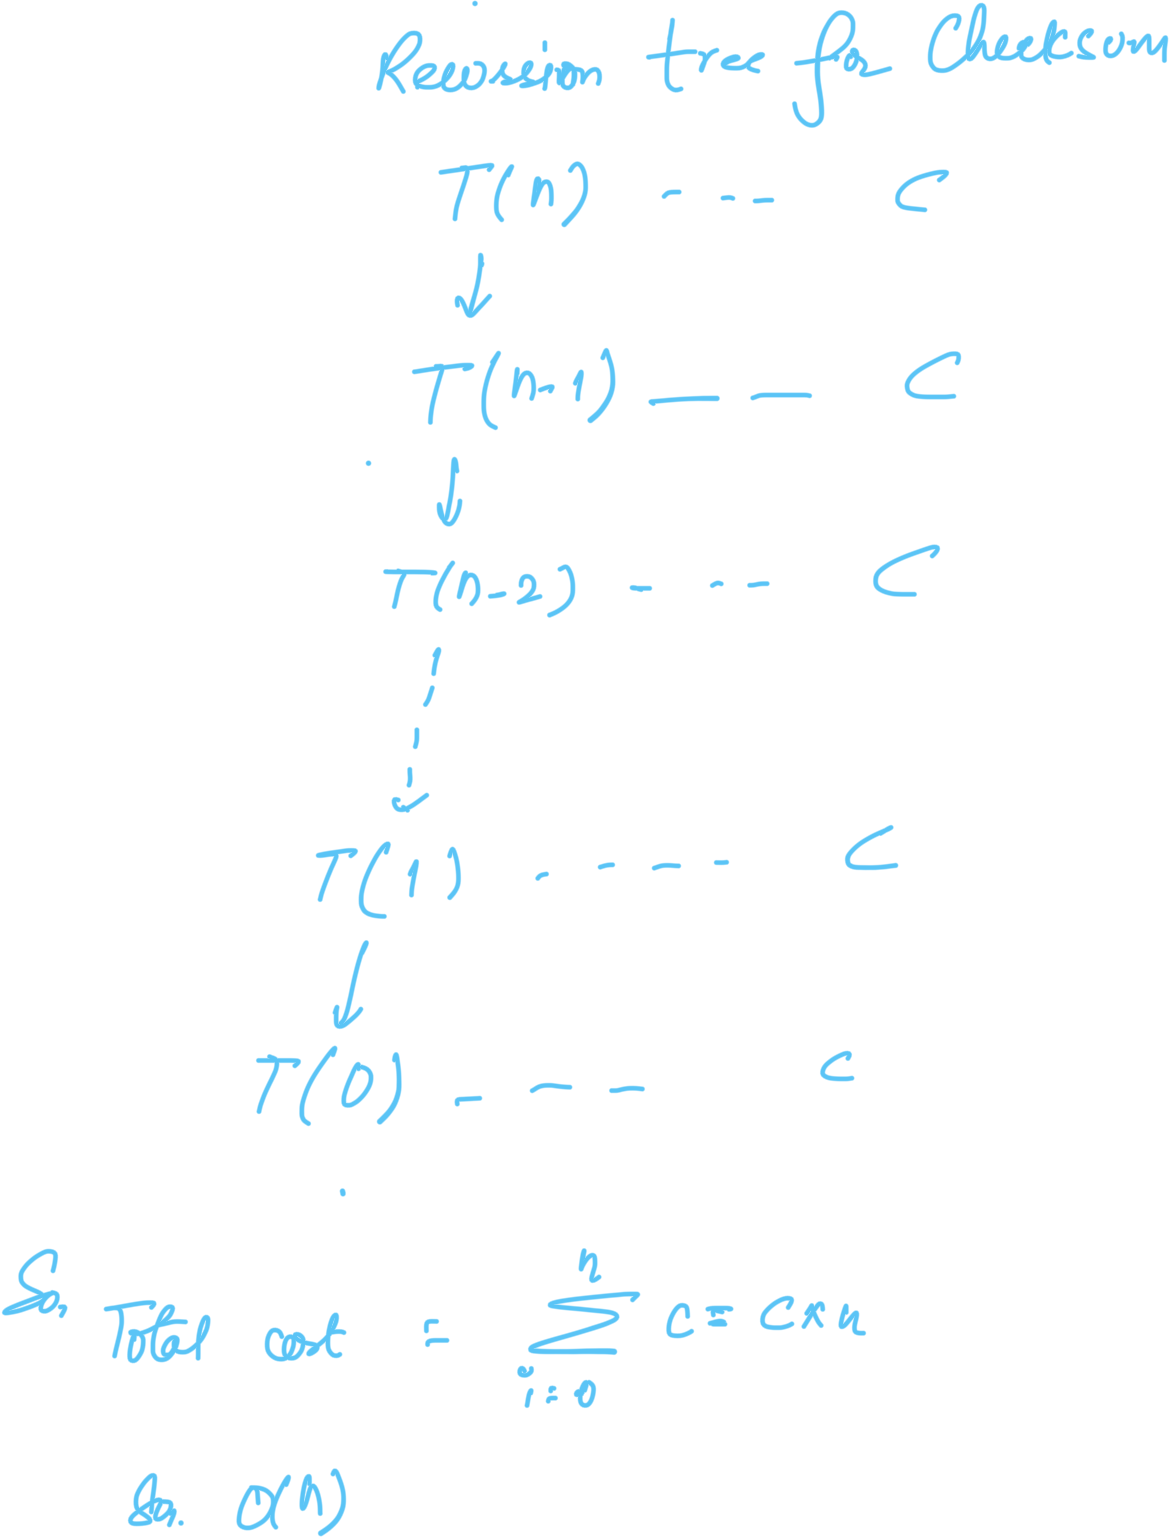 Recursion tree for Checksum
T(n) - -- C
T(n-1) — — C
T(n-2) - -- C
T(1) - - - - C
T(0) - - - C
So, Total cost = \sum_{i=0}^{n} C = C x n
So. O(n)